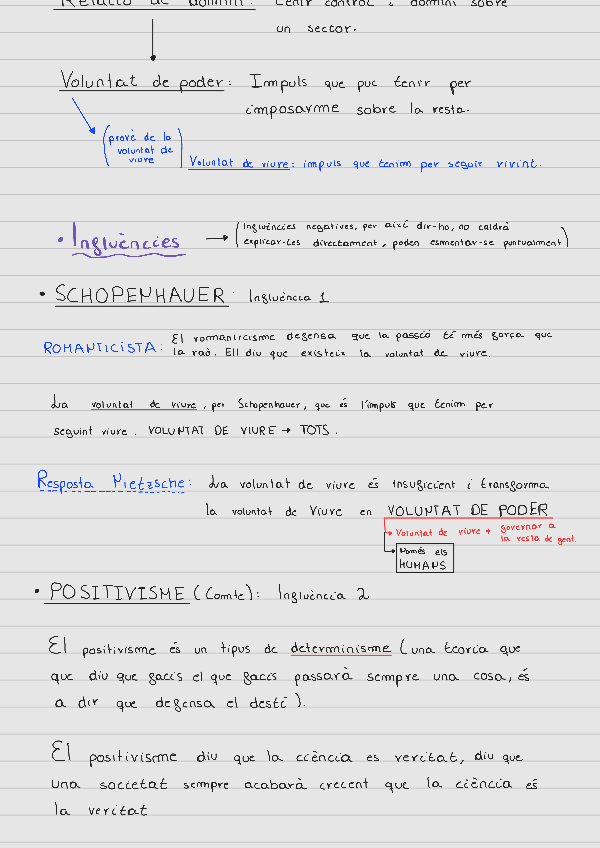 Relació de domini: Tenir control i domini sobre
un sector.
Voluntat de poder: Impuls que puc tenir per
imposarme sobre la resta.
(prové de la
voluntat de
viure)
Voluntat de viure: impuls que tenim per seguir vivint.
• Influències → (Influències negatives, per així dir-ho, no caldrà
explicar-les directament, poden esmentar-se puntualment)
• SCHOPENHAUER: Influència 1
ROMANTICISTA: El romanticisme defensa que la passió té més força que
la raó. Ell diu que existeix la voluntat de viure.
La voluntat de viure, per Schopenhauer, que és l'impuls que tenim per
seguint viure. VOLUNTAT DE VIURE → TOTS.
Resposta Nietzsche: La voluntat de viure és insuficient i transforma
la voluntat de Viure en VOLUNTAT DE PODER
→ Voluntat de viure + governar a
la resta de gent.
→ Només els
HUMANS
• POSITIVISME (Comte): Influència 2
El positivisme és un tipus de determinisme (una teoria que
que diu que facis el que facis passarà sempre una cosa, és
a dir que defensa el destí).
El positivisme diu que la ciència es veritat, diu que
una societat sempre acabarà creient que la ciència és
la veritat